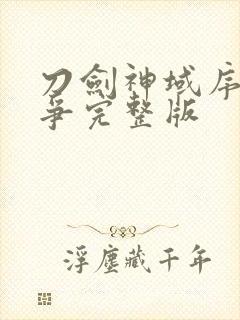 刀劍神域序
爭完整版
浮塵藏千年